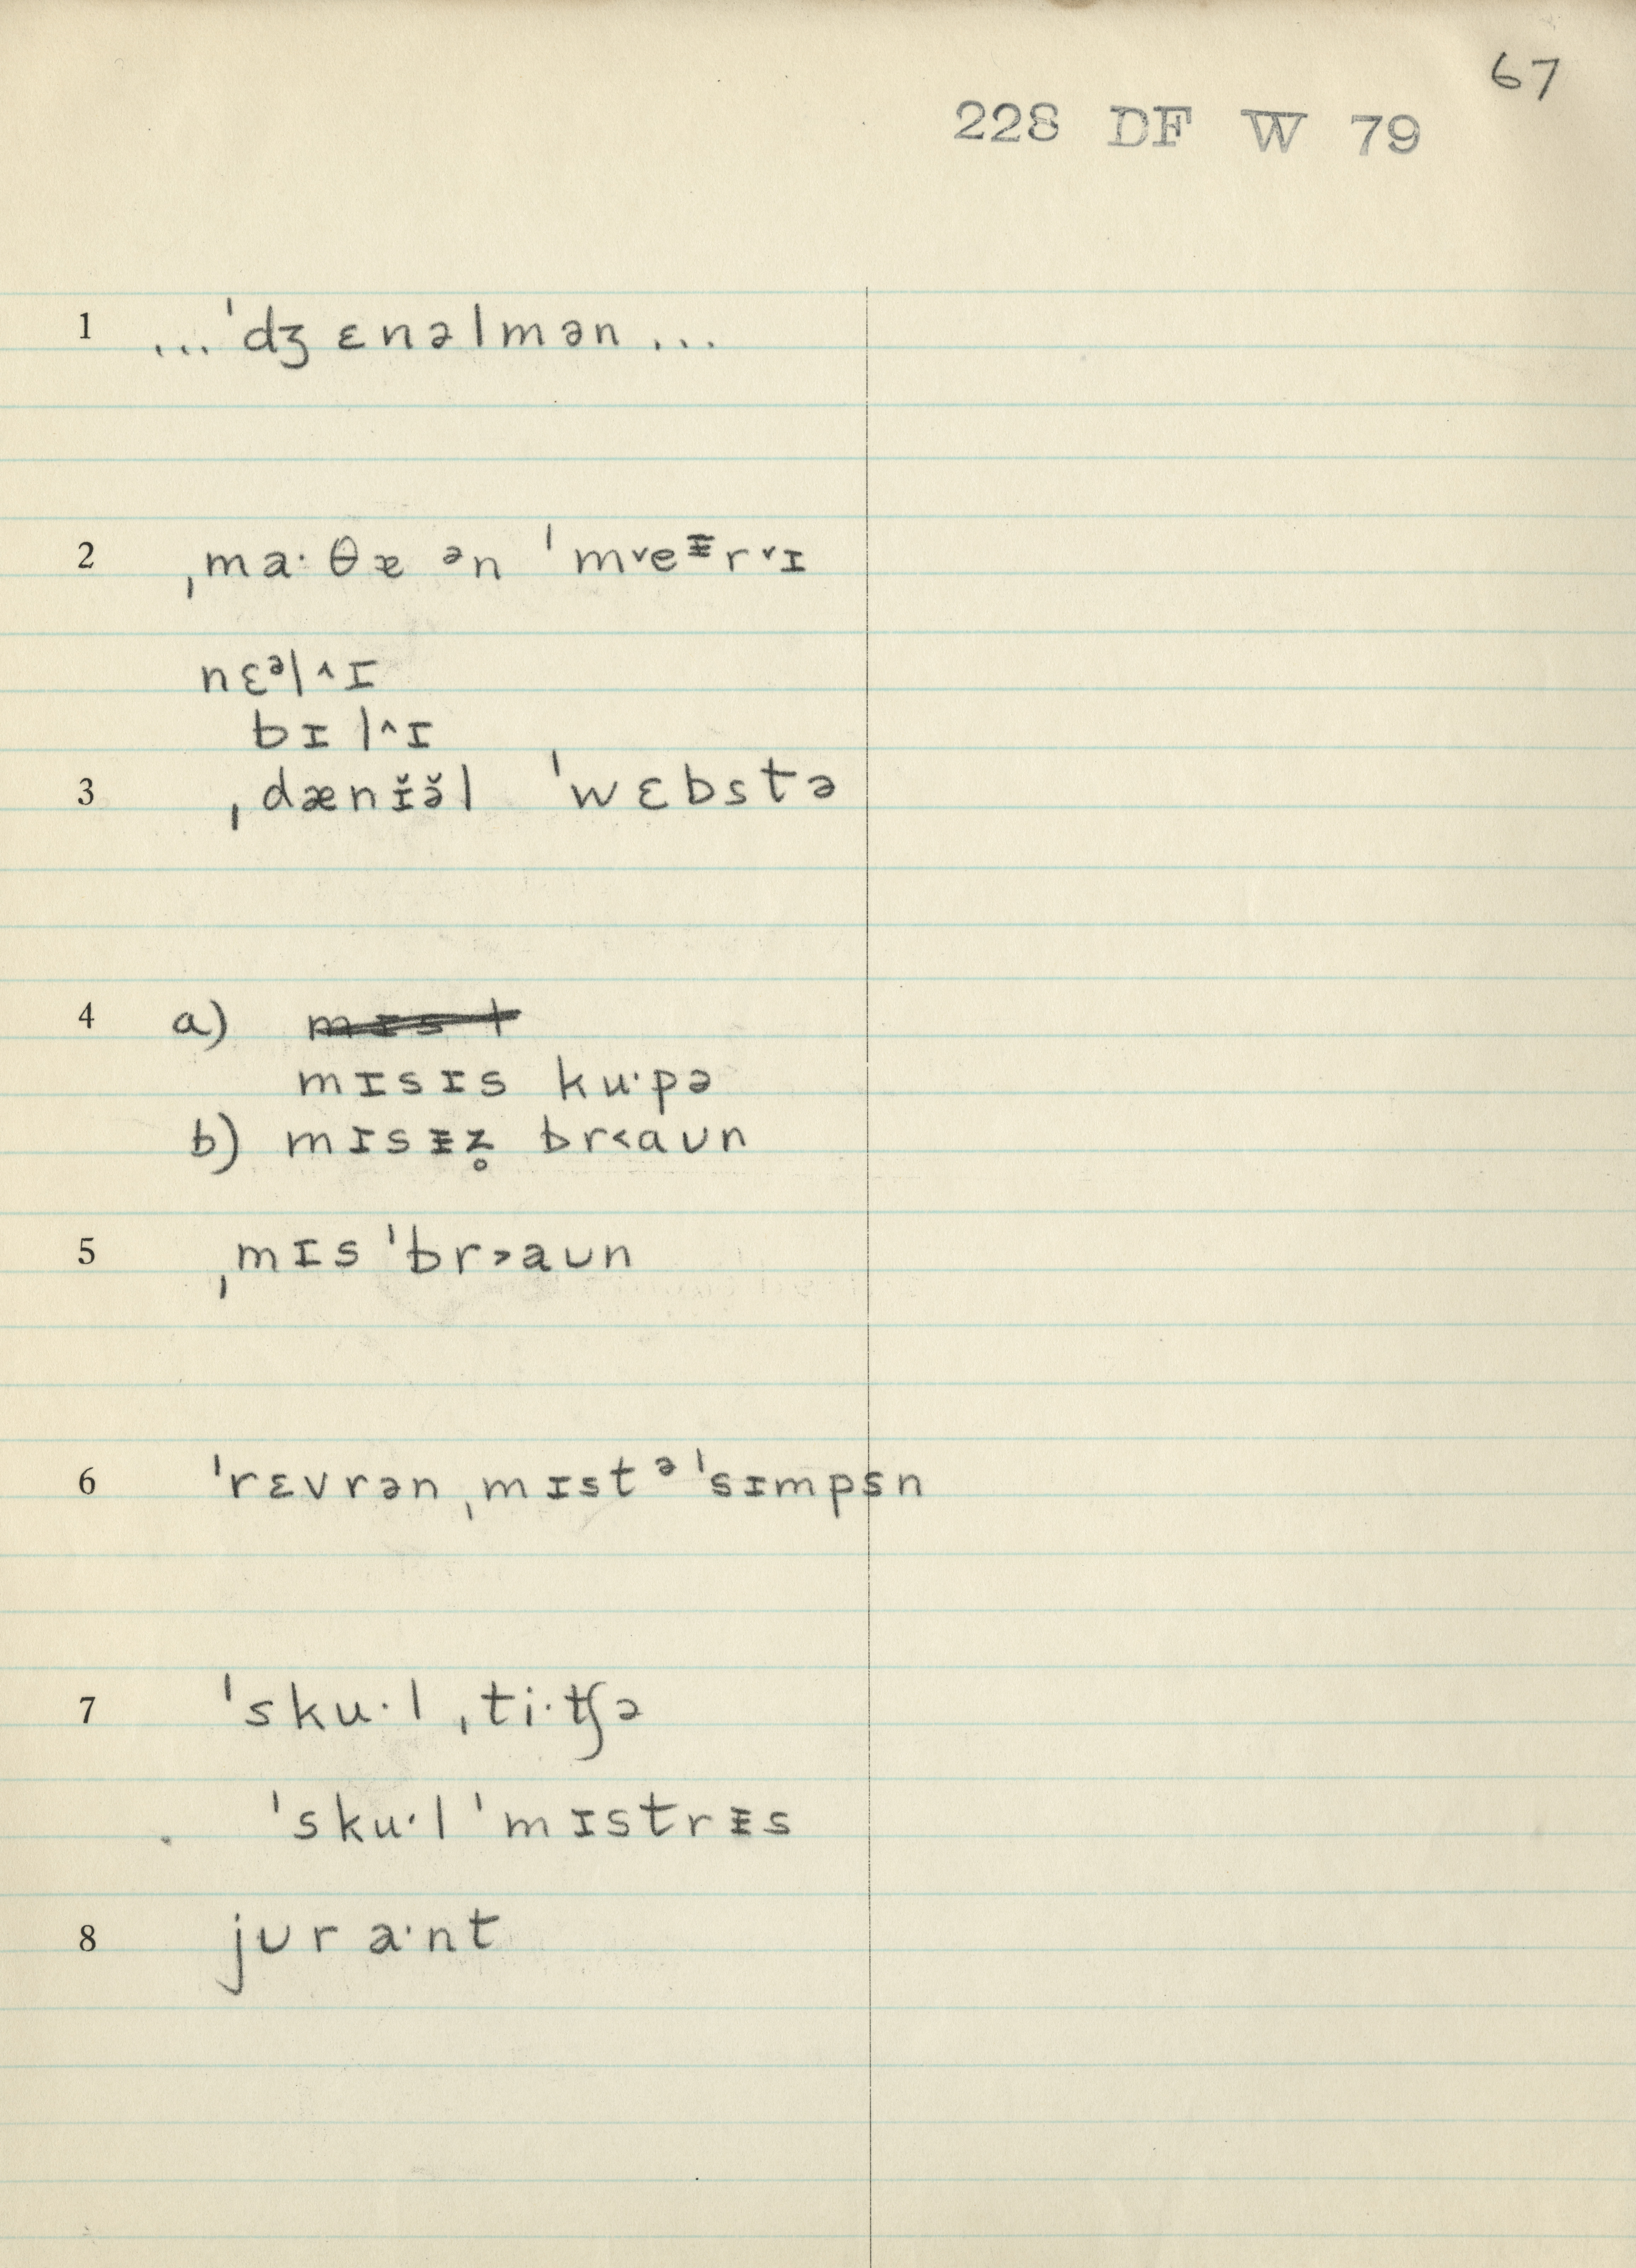 67
228 DF W 79
1 ...ˈdʒɛnəlmən...
2 ˌma·θæ ᵊn ˈm˅eᵻr˅ɪ
nɛᵊl^ɪ
bɪl^ɪ
3 ˌdænɪ̆ə̆l ˈwɛbstə
4 a) mɪst
mɪsɪs ku·pə
b) mɪsᵻz̥ br<aʊn
5 ˌmɪs ˈbr>aʊn
6 ˈrɛvrən ˌmɪstᵊ ˈsɪmpsn
7 ˈsku·l ˌti·tʃə
ˈsku·l ˈmɪstrᵻs
8 jʊra·nt